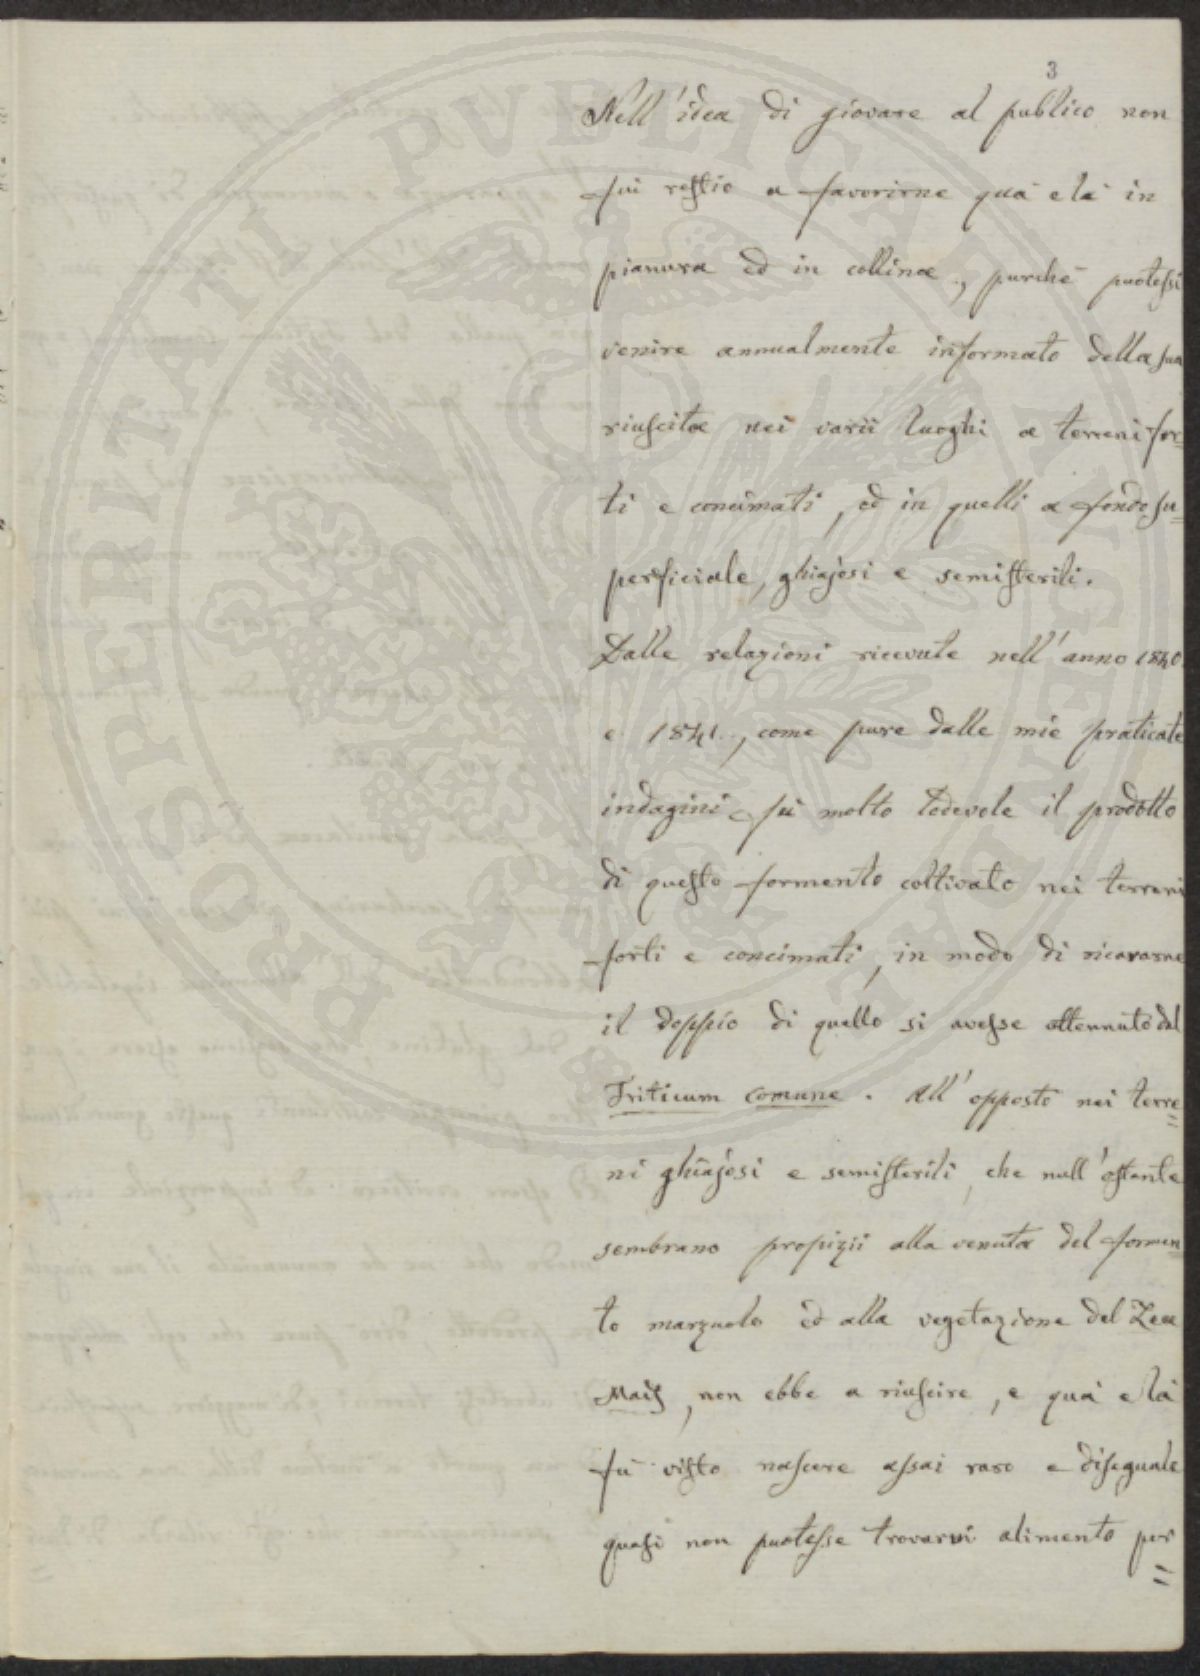 3
Nell'idea di giovare al publico non
fui restio a favorirne quà e là in
pianura ed in collina, purchè puotessi
venire annualmente informato della sua
riuscita nei varii luoghi a terreni for=
ti e concimati, ed in quelli a fondo su=
perficiale, ghiajosi e semisterili.
Dalle relazioni ricevute nell'anno 1840.
e 1841., come pure dalle mie praticate
indagini fù molto lodevole il prodotto
di questo formento coltivato nei terreni
forti e concimati, in modo di ricavarne
il doppio di quello si avesse ottennuto dal
Triticum comune. All'opposto nei terre=
ni ghiajosi e semisterili, che null'ostante
sembrano propizii alla venuta del formen=
to marzuolo ed alla vegetazione del Zea
Mais, non ebbe a riuscire, e quà e là
fù visto nascere assai raro e diseguale
quasi non puotesse trovarvi alimento per=
PROSPERITATI PVBLICAE AVGENDAE